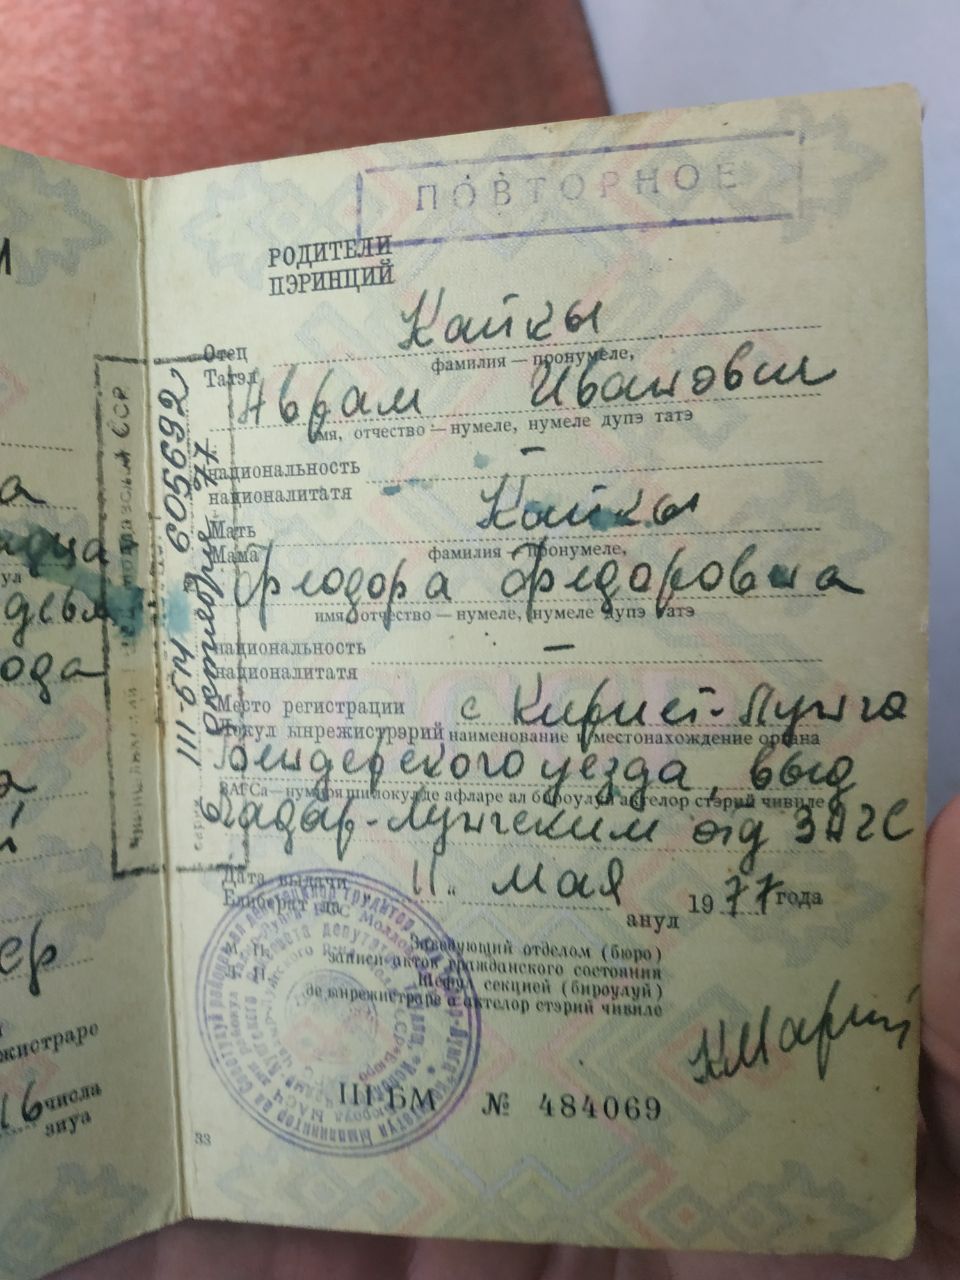 ПОВТОРНОЕ
РОДИТЕЛИ
ПЭРИНЦИЙ
Кайкы
Отец
фамилия — пронумеле,
Татэл
Аврам Иванович
имя, отчество — нумеле, нумеле дупэ татэ
национальность —
националитатя
Кайкы
Мать
фамилия — пронумеле,
Мама
Феодора Федоровна
имя, отчество — нумеле, нумеле дупэ татэ
национальность —
националитатя
Место регистрации с Кириет-Лунга
Локул ынрежистрэрий наименование и местонахождение органа
Бендерского уезда, выд
ЗАГСа — нумиря ши локул де афларе ал бироулуй актелор стэрий чивиле
Чадар-Лунгским отд ЗАГС
Дата выдачи 11 мая 1977 года
Елиберат ла анул
Заведующий отделом (бюро)
записи актов гражданского состояния
Шефул секцией (бироулуй)
де ынрежистраре а актелор стэрий чивиле
III-БМ № 484069
33
III-БМ 605692
77
ода
ер
жистраре
16 числа
зиуа